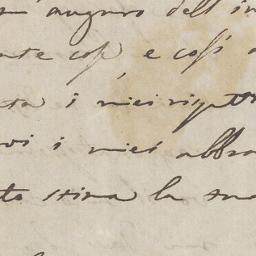 auguro dell' in
nte così e così
sta i miei rispetti
voi i miei abbra
to stima la sua